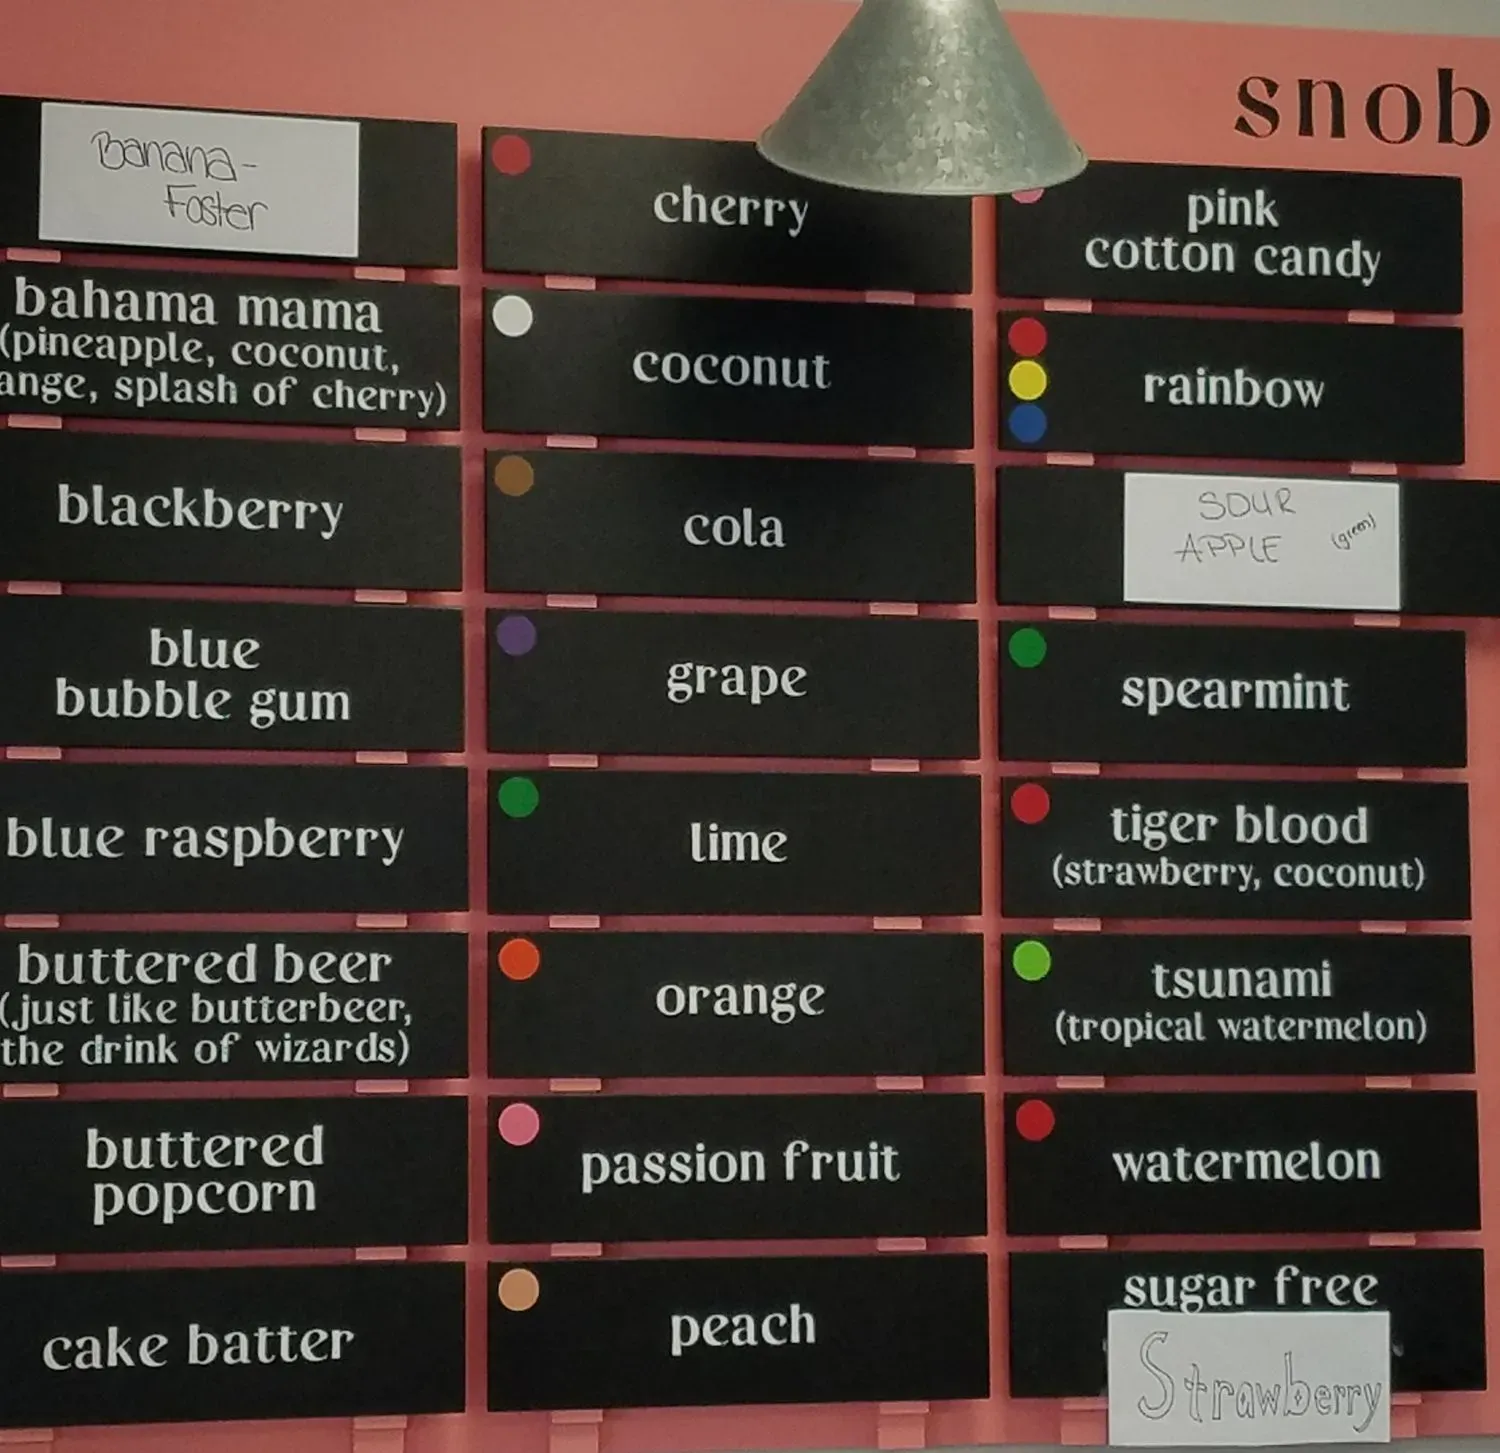 snob
Banana-
Foster
bahama mama
(pineapple, coconut,
ange, splash of cherry)
blackberry
blue
bubble gum
blue raspberry
buttered beer
(just like butterbeer,
the drink of wizards)
buttered
popcorn
cake batter
cherry
coconut
cola
grape
lime
orange
passion fruit
peach
pink
cotton candy
rainbow
SOUR
APPLE (green)
spearmint
tiger blood
(strawberry, coconut)
tsunami
(tropical watermelon)
watermelon
sugar free
Strawberry